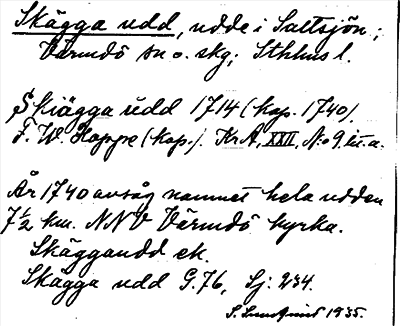 Skägga udd, udde i Saltsjön;
Värmdö sn o. skg; Sthlms l.
Skiägga udd 1714 (kop. 1740).
F. W. Hoppe (kop.). KrA, XXII, N:o 9 lit. a.
År 1740 avsåg namnet hela udden
7½ km. NNV Värmdö kyrka.
Skäggaudd ek.
Skägga udd G. 76, Sj: 234.
S. Lundqvist 1935.